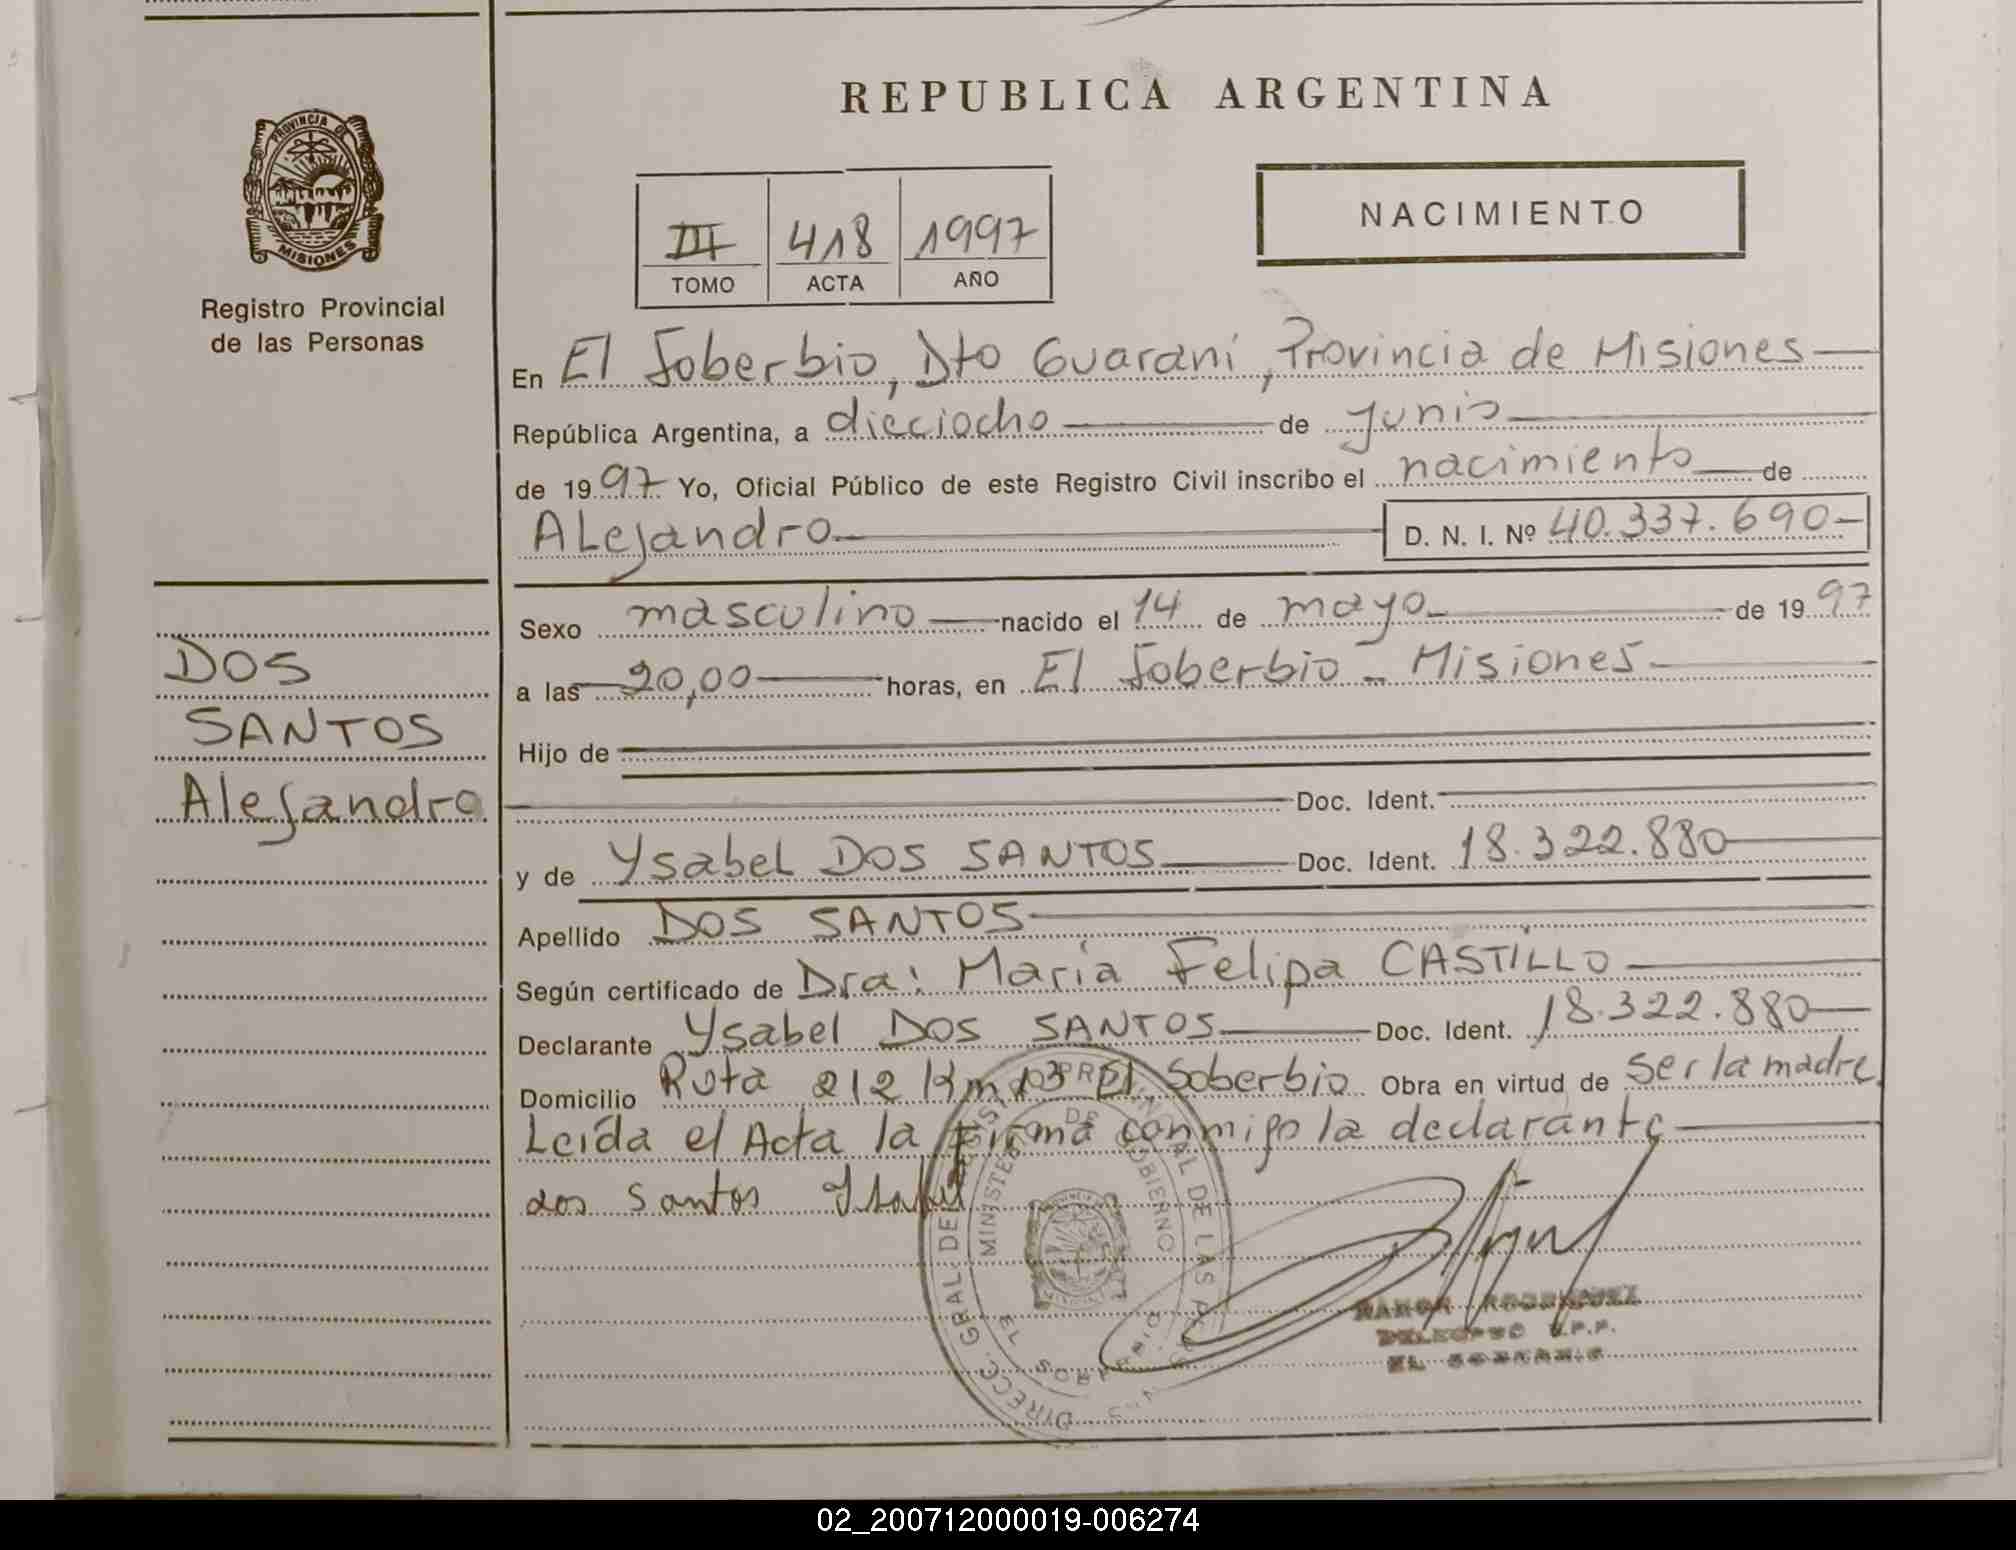 REPUBLICA ARGENTINA
PROVINCIA DE
MISIONES
Registro Provincial
de las Personas
III 418 1997
TOMO ACTA AÑO
NACIMIENTO
En El Soberbio, Dto Guaraní, Provincia de Misiones
República Argentina, a dieciocho de junio
de 1997 Yo, Oficial Público de este Registro Civil inscribo el nacimiento de
Alejandro D. N. I. Nº 40.337.690
Sexo masculino nacido el 14 de mayo de 1997
a las 20,00 horas, en El Soberbio - Misiones
Hijo de
Doc. Ident.
y de Ysabel DOS SANTOS Doc. Ident. 18.322.880
Apellido DOS SANTOS
Según certificado de Dra: María Felipa CASTILLO
Declarante Ysabel DOS SANTOS Doc. Ident. 18.322.880
Domicilio Ruta 212 Km 13 El Soberbio Obra en virtud de ser la madre
Leída el Acta la firma conmigo la declarante
dos Santos Ysabel
DOS
SANTOS
Alejandro
DIRECC. GRAL. DE PROVINCIAL DE LAS
MINISTERIO DE GOBIERNO
EL SOBERBIO
RODRIGUEZ
DELEGADO R.P.P.
EL SOBERBIO
02_200712000019-006274